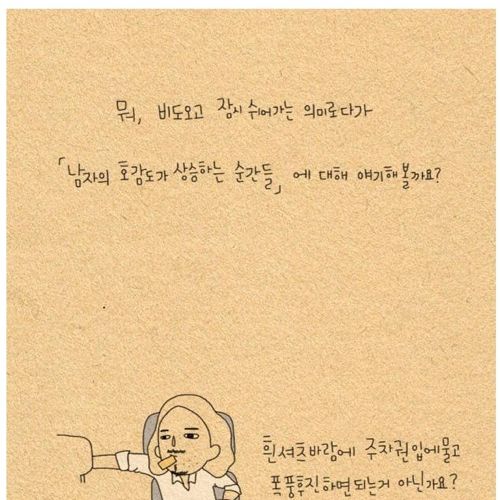 뭐, 비도오고 잠시 쉬어가는 의미로다가
「남자의 호감도가 상승하는 순간들」 에 대해 얘기해볼까요?
흰셔츠바람에 주차권입에물고
폭풍후진하면되는거 아닌가요?